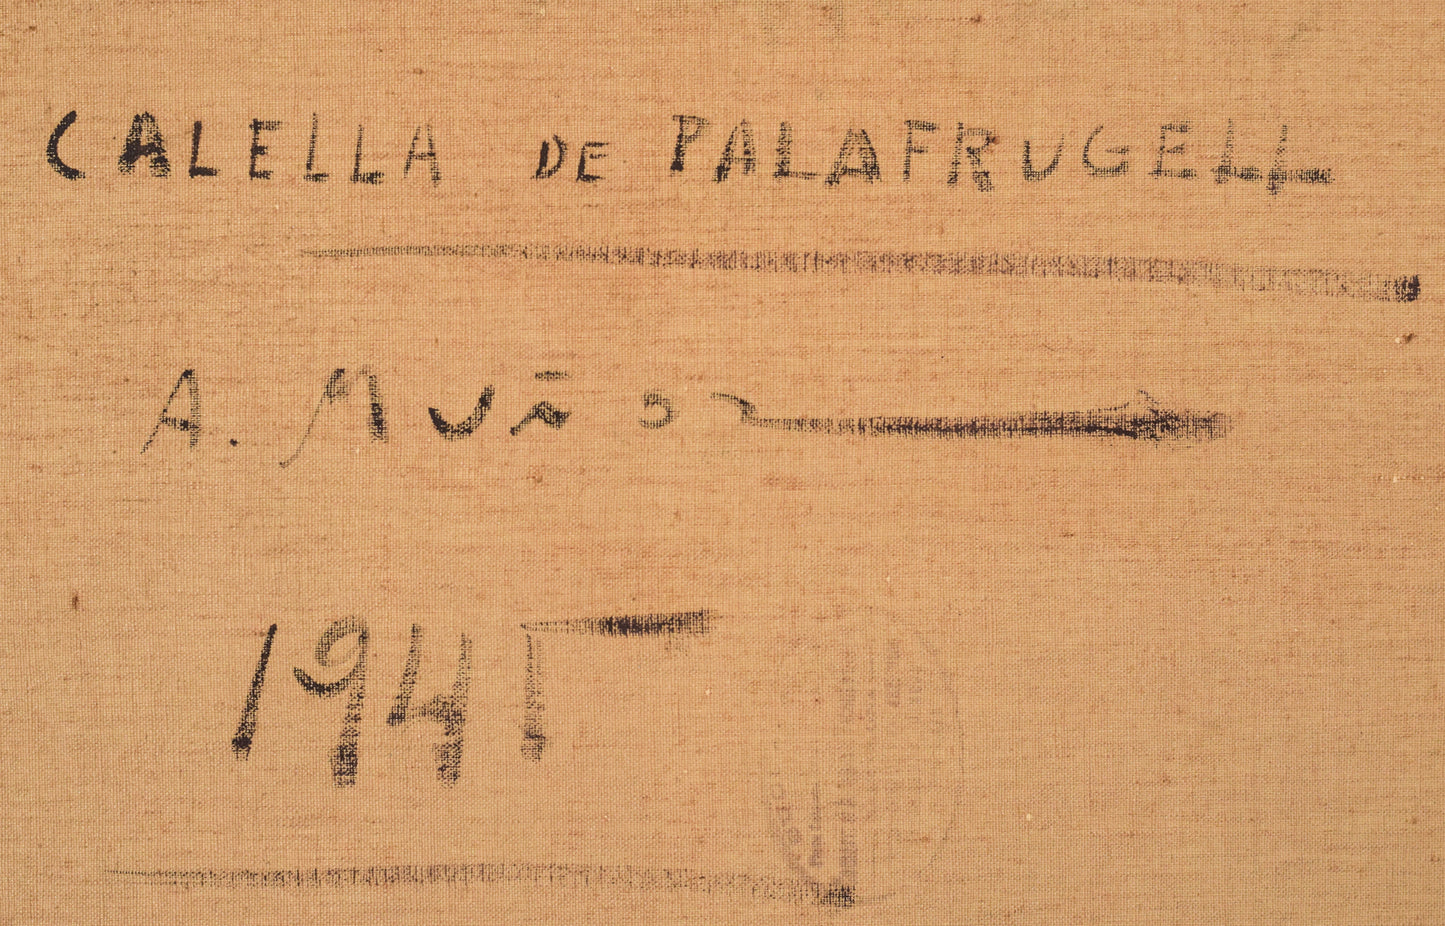 CALELLA DE PALAFRUGELL
A. Muñoz
1941